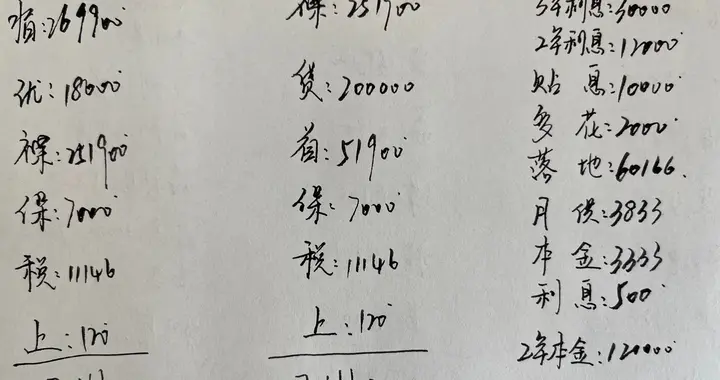 指:269900
优:18000
裸:251900
保:7000
税:11146
上:120
裸:251900
贷:200000
首:51900
保:7000
税:11146
上:120
5年利息:30000
2年利息:12000
贴息:10000
多花:2000
落地:60166.
月供:3833
本金:3333
利息:500
2年本金:120000